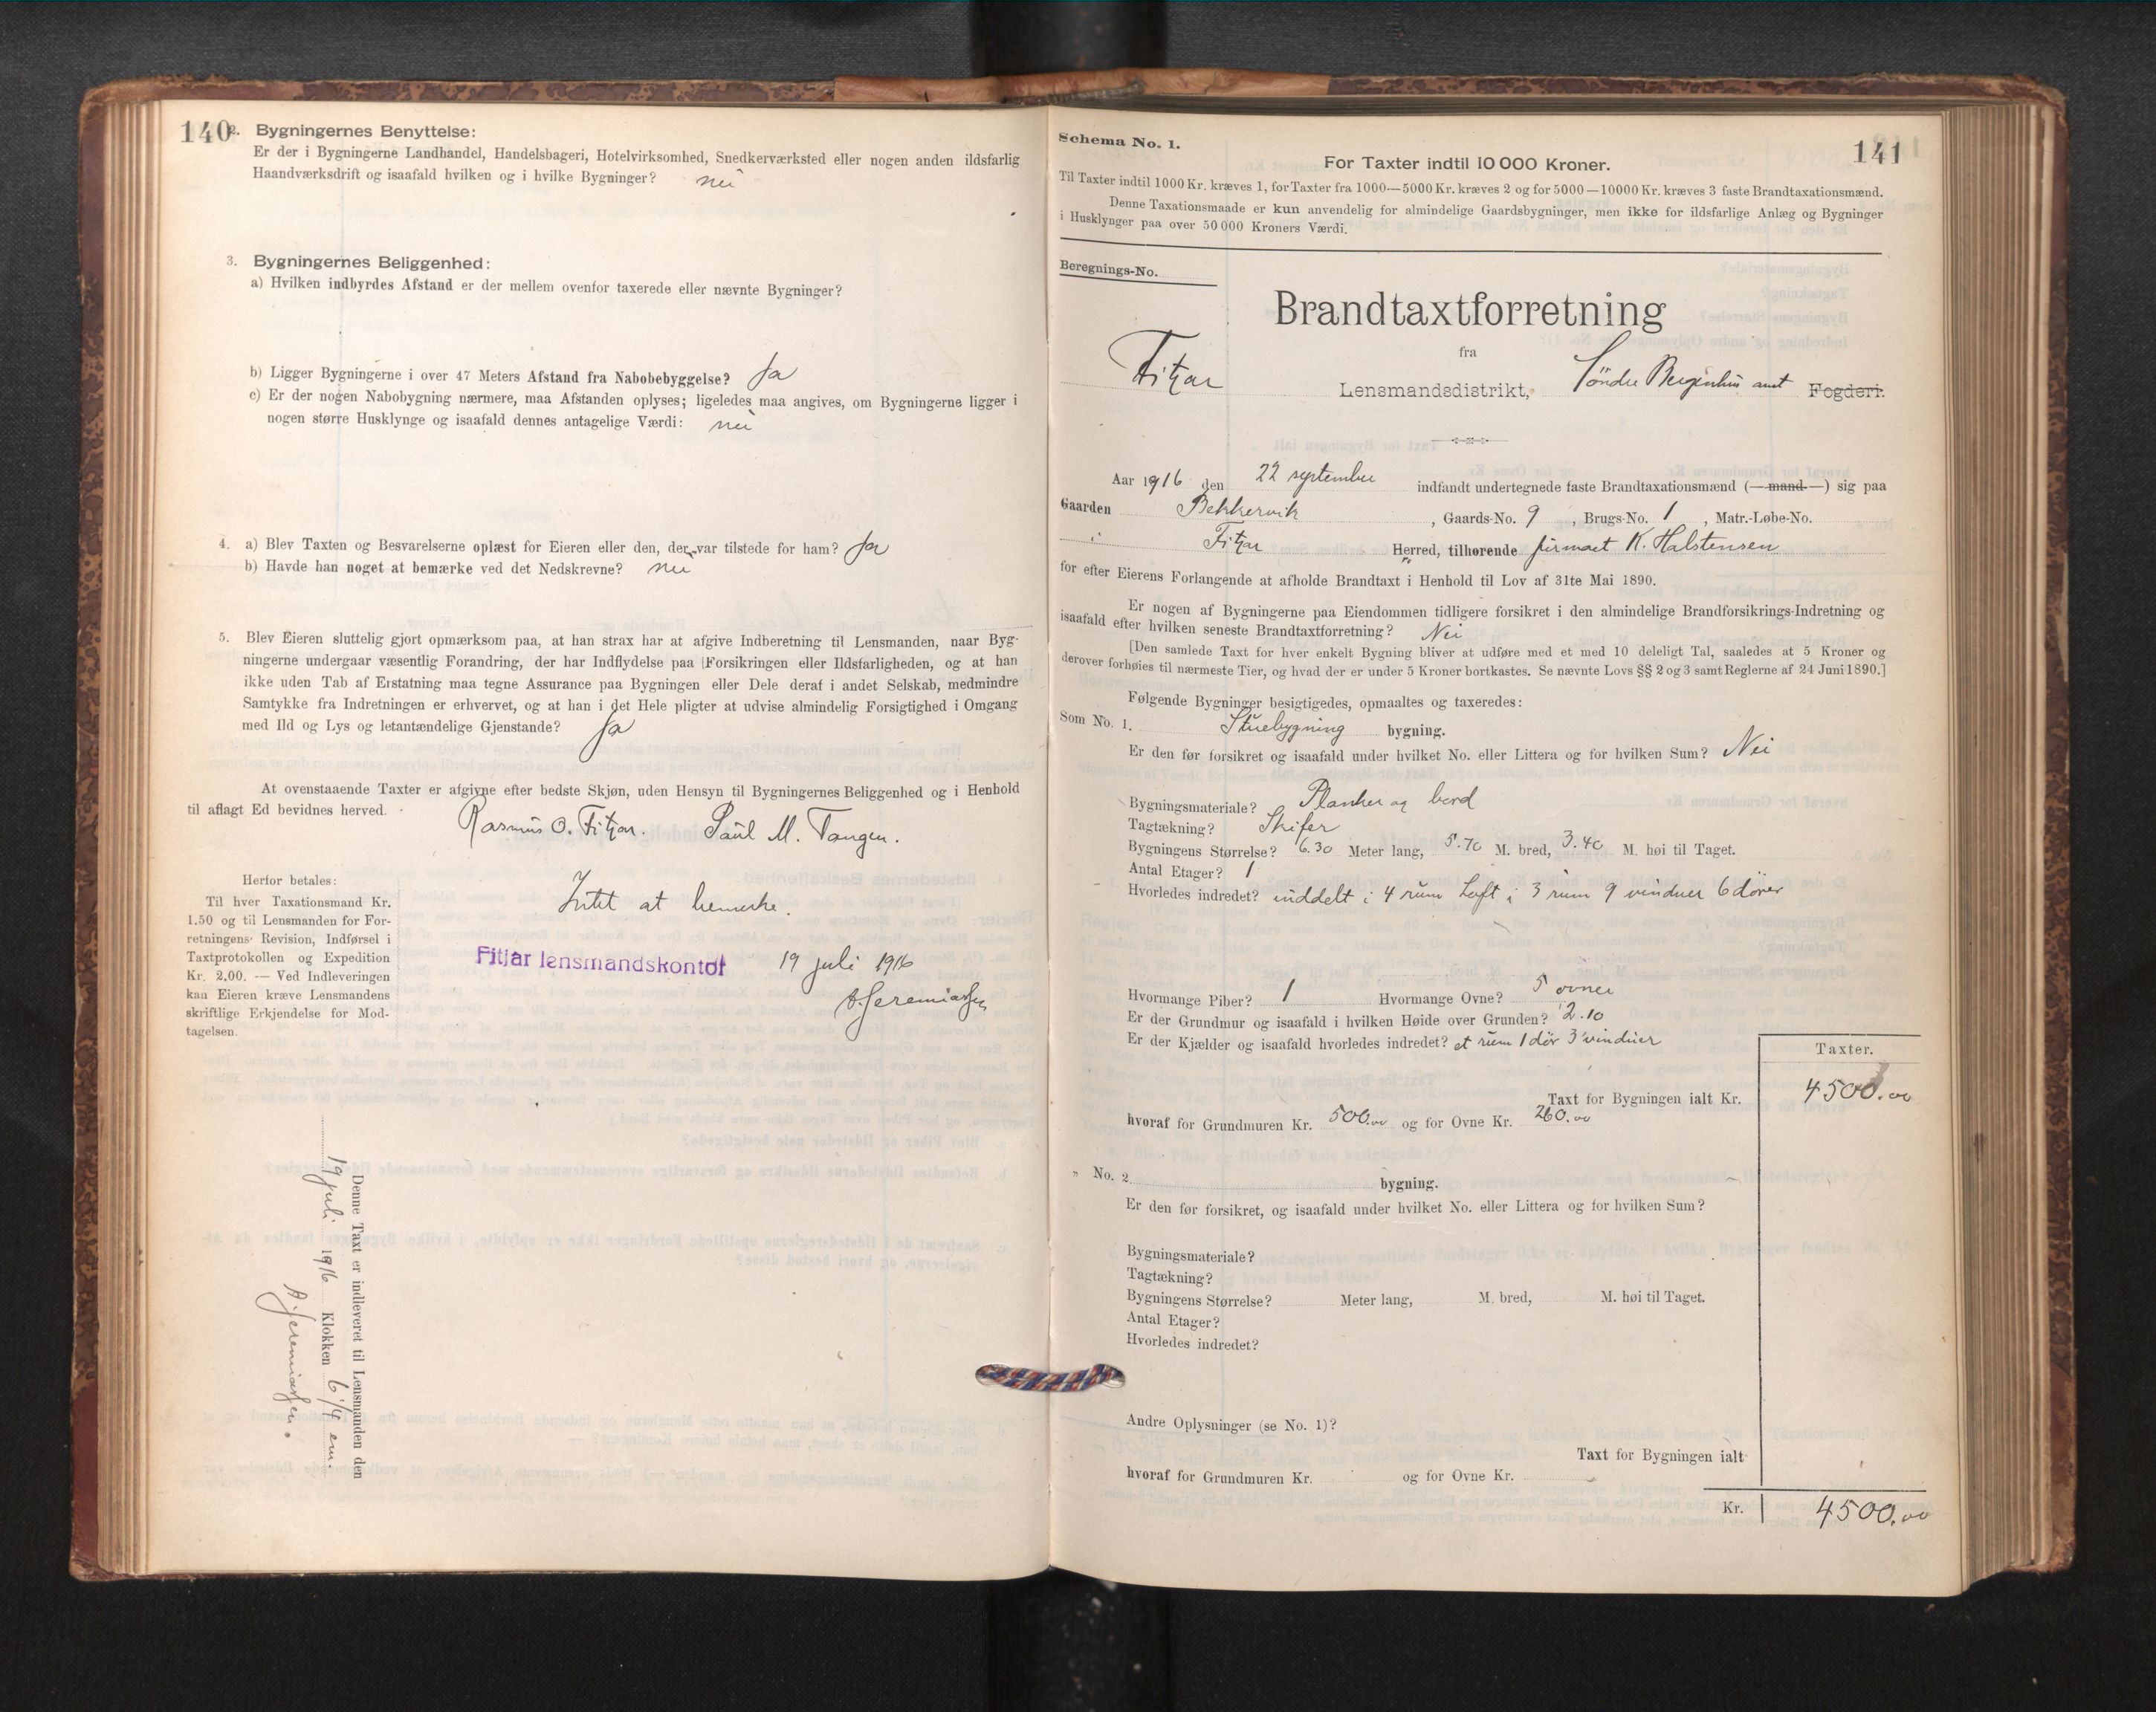 140
2. Bygningernes Benyttelse:
Er der i Bygningerne Landhandel, Handelsbageri, Hotelvirksomhed, Snedkerværksted eller nogen anden ildsfarlig
Haandværksdrift og isaafald hvilken og i hvilke Bygninger? nei
3. Bygningernes Beliggenhed:
a) Hvilken indbyrdes Afstand er der mellem ovenfor taxerede eller nævnte Bygninger?
b) Ligger Bygningerne i over 47 Meters Afstand fra Nabobebyggelse? Ja
c) Er der nogen Nabobygning nærmere, maa Afstanden oplyses; ligeledes maa angives, om Bygningerne ligger i
nogen større Husklynge og isaafald dennes antagelige Værdi: nei
4. a) Blev Taxten og Besvarelserne oplæst for Eieren eller den, der var tilstede for ham? Ja
b) Havde han noget at bemærke ved det Nedskrevne? nei
5. Blev Eieren sluttelig gjort opmærksom paa, at han strax har at afgive Indberetning til Lensmanden, naar Byg-
ningerne undergaar væsentlig Forandring, der har Indflydelse paa Forsikringen eller Ildsfarligheden, og at han
ikke uden Tab af Erstatning maa tegne Assurance paa Bygningen eller Dele deraf i andet Selskab, medmindre
Samtykke fra Indretningen er erhvervet, og at han i det Hele pligter at udvise almindelig Forsigtighed i Omgang
med Ild og Lys og letantændelige Gjenstande? Ja
At ovenstaaende Taxter er afgivne efter bedste Skjøn, uden Hensyn til Bygningernes Beliggenhed og i Henhold
til aflagt Ed bevidnes herved.
Rasmus O. Fitjar. Paul M. Tangen.
Herfor betales:
Til hver Taxationsmand Kr.
1,50 og til Lensmanden for For-
retningens Revision, Indførsel i
Taxtprotokollen og Expedition
Kr. 2,00. — Ved Indleveringen
kan Eieren kræve Lensmandens
skriftlige Erkjendelse for Mod-
tagelsen.
Intet at bemerke.
Fitjar lensmandskontor 19 juli 1916
A. Jeremiassen
Denne Taxt er indleveret til Lensmanden den
19 juli 1916 Klokken 6 1/4 em.
A. Jeremiassen.
141
Schema No. 1.
For Taxter indtil 10 000 Kroner.
Til Taxter indtil 1000 Kr. kræves 1, for Taxter fra 1000—5000 Kr. kræves 2 og for 5000—10000 Kr. kræves 3 faste Brandtaxationsmænd.
Denne Taxationsmaade er kun anvendelig for almindelige Gaardsbygninger, men ikke for ildsfarlige Anlæg og Bygninger
i Husklynger paa over 50 000 Kroners Værdi.
Beregnings-No.
Brandtaxtforretning
fra
Fitjar Lensmandsdistrikt, Söndre Bergenhus amt Fogderi.
Aar 1916 den 22 september indfandt undertegnede faste Brandtaxationsmænd (—mand—) sig paa
Gaarden Bekkervik, Gaards-No. 9, Brugs-No. 1, Matr.-Løbe-No.
i Fitjar Herred, tilhørende firmaet K. Halstensen
for efter Eierens Forlangende at afholde Brandtaxt i Henhold til Lov af 31te Mai 1890.
Er nogen af Bygningerne paa Eiendommen tidligere forsikret i den almindelige Brandforsikrings-Indretning og
isaafald efter hvilken seneste Brandtaxtforretning? Nei
[Den samlede Taxt for hver enkelt Bygning bliver at udføre med et med 10 deleligt Tal, saaledes at 5 Kroner og
derover forhøies til nærmeste Tier, og hvad der er under 5 Kroner bortkastes. Se nævnte Lovs §§ 2 og 3 samt Reglerne af 24 Juni 1890.]
Følgende Bygninger besigtigedes, opmaaltes og taxeredes:
Som No. 1. Stuebygning bygning.
Er den før forsikret og isaafald under hvilket No. eller Littera og for hvilken Sum? Nei
Bygningsmateriale? Planker og bord
Tagtækning? Skifer
Bygningens Størrelse? 6.30 Meter lang, 5.70 M. bred, 3.40 M. høi til Taget.
Antal Etager? 1
Hvorledes indredet? inddelt i 4 rum Loft i 3 rum 9 vinduer 6 dører
Hvormange Piber? 1 Hvormange Ovne? 5 ovner
Er der Grundmur og isaafald i hvilken Høide over Grunden? 2.10
Er der Kjælder og isaafald hvorledes indredet? et rum 1 dör 3 vinduer
Taxter.
Taxt for Bygningen ialt Kr. 4500.00
hvoraf for Grundmuren Kr. 500.00 og for Ovne Kr. 260.00
" No. 2. bygning.
Er den før forsikret, og isaafald under hvilket No. eller Littera og for hvilken Sum?
Bygningsmateriale?
Tagtækning?
Bygningens Størrelse? Meter lang, M. bred, M. høi til Taget.
Antal Etager?
Hvorledes indredet?
Andre Oplysninger (se No. 1)?
Taxt for Bygningen ialt
hvoraf for Grundmuren Kr. og for Ovne Kr.
Kr. 4500.00